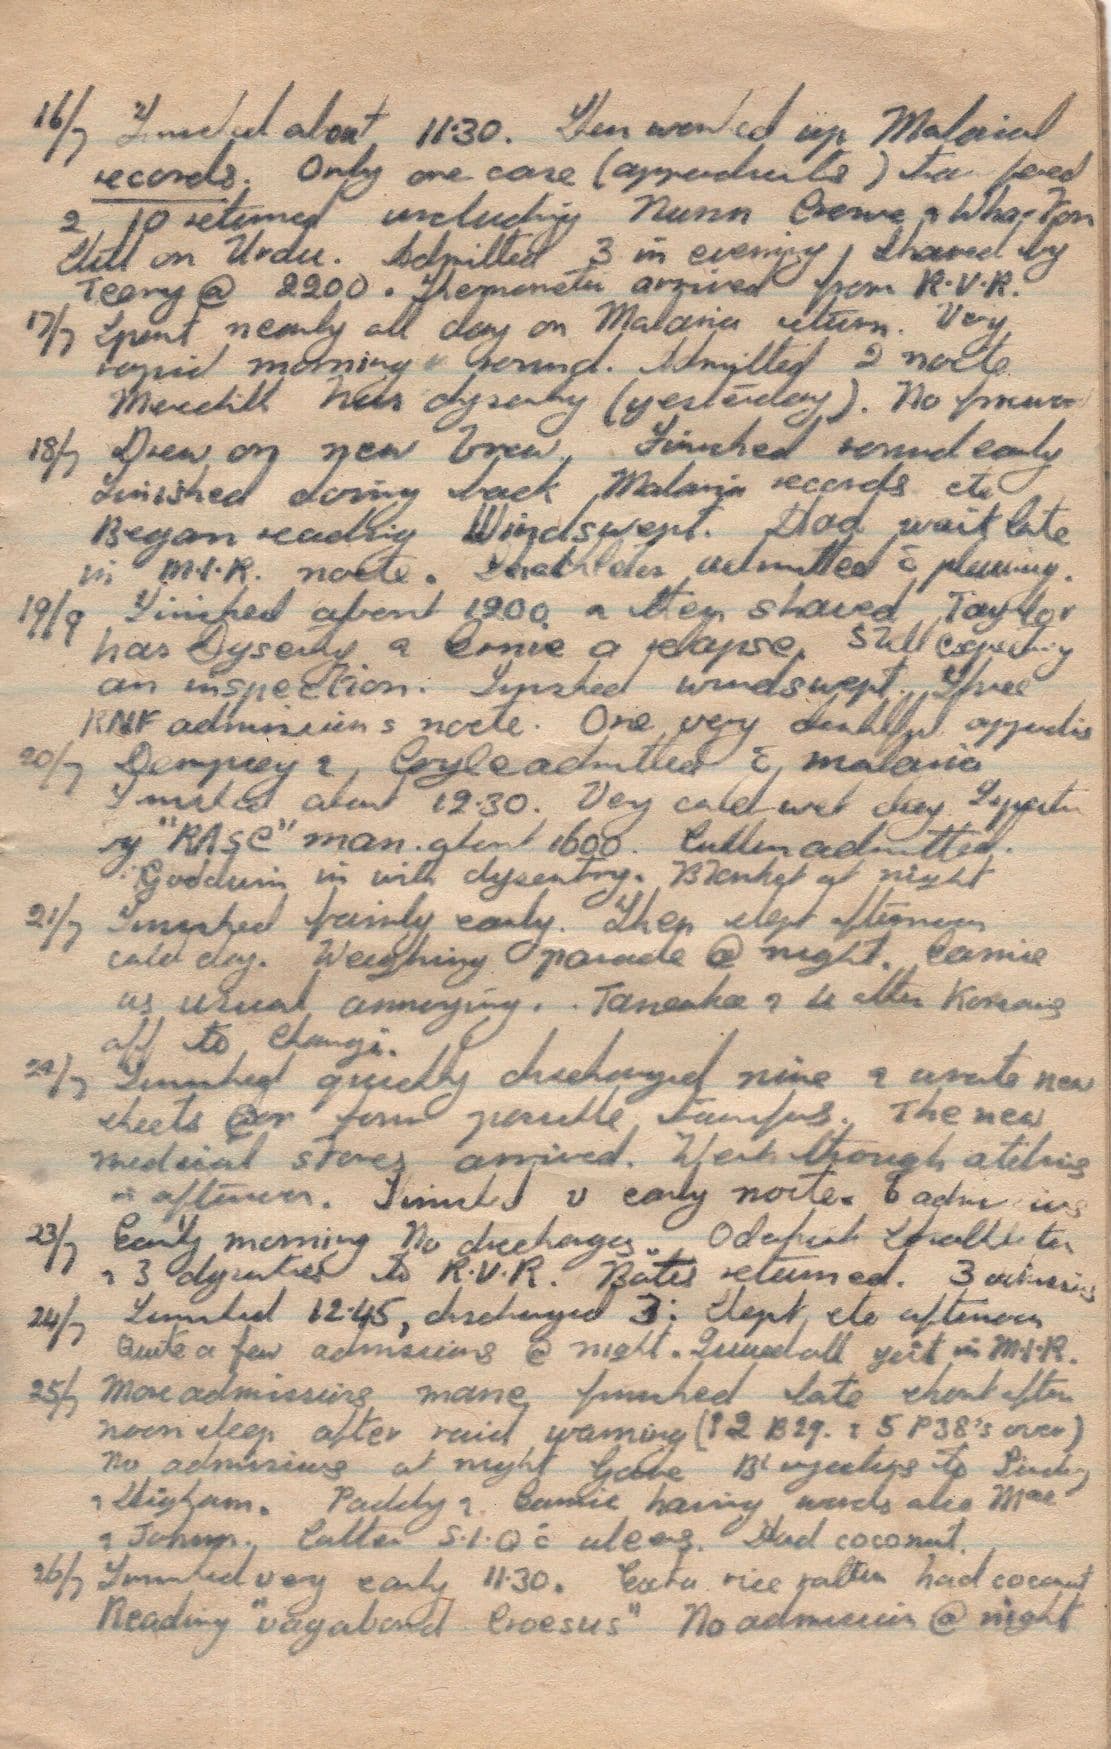 16/7 Finished about 11.30. Then worked up Malarial
records. Only one case (appendicitis)
2 10 returned including Nunn Crowe & Wharton
Still on Urdu. Admitted 3 in evening, shaved by
Terry @ 2200. Thermometer arrived from R.V.R.
17/7 Spent nearly all day on Malaria return. Very
rapid morning round. Admitted 2 nocte
Meredith has dysentry (yesterday). No
18/7 Drew on new brew. Finished round early
Finished doing back Malaria records etc
Began reading Windswept. Had wait late
in M.I.R. nocte. admitted c̄
19/7 Finished about 1200 & then shaved Taylor
has Dysentry & Ernie a relapse. Still expecting
an inspection. Finished windswept. Three
RNF admissions nocte. One very doubtful appendix
20/7 Dempsey & Coyle admitted c̄ malaria
Finished about 12.30. Very cold wet day
"RASC" man about 1600. Cullen admitted.
Goodwin in with dysentry. Blanket at night
21/7 Finished fairly early. Then slept afternoon
cold day. Weighing parade @ night.
as usual annoying. & 4 other Koreans
off to Changi.
22/7 Finished quickly discharged nine & wrote new
sheets for possible transfers. The new
medical stores arrived. Went through
in afternoon. Finished v early nocte. 6
23/7 Early morning No discharges.
& 3 dysentries to R.V.R. Bates returned. 3 admissions
24/7 Finished 12.45, discharged 3: Slept etc afternoon
Quite a few admissions @ night. yet in M.I.R.
25/7 More admissions mane finished late short after
noon sleep after raid warning (12 B29. & 5 P38's over)
No admissions at night Gave B1 injections to
& Higham. Paddy & having words also Mac
& Johnn. S.I.Q c̄ ulcers. Had coconut.
26/7 Finished very early 11.30. Extra rice had coconut
Reading "vagabond Croesus" No admission @ night